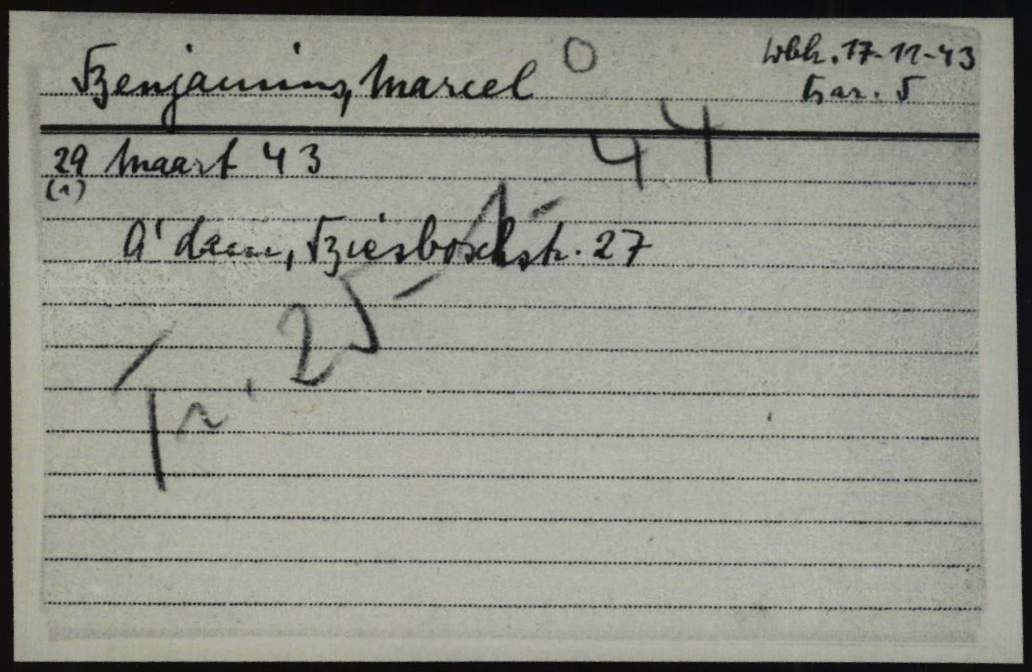 Benjamins, Marcel O
Wbk. 17-11-43
Bar. 5
29 Maart 43
(1)
A'dam, Biesboschstr. 27
Tr. 25-1-44